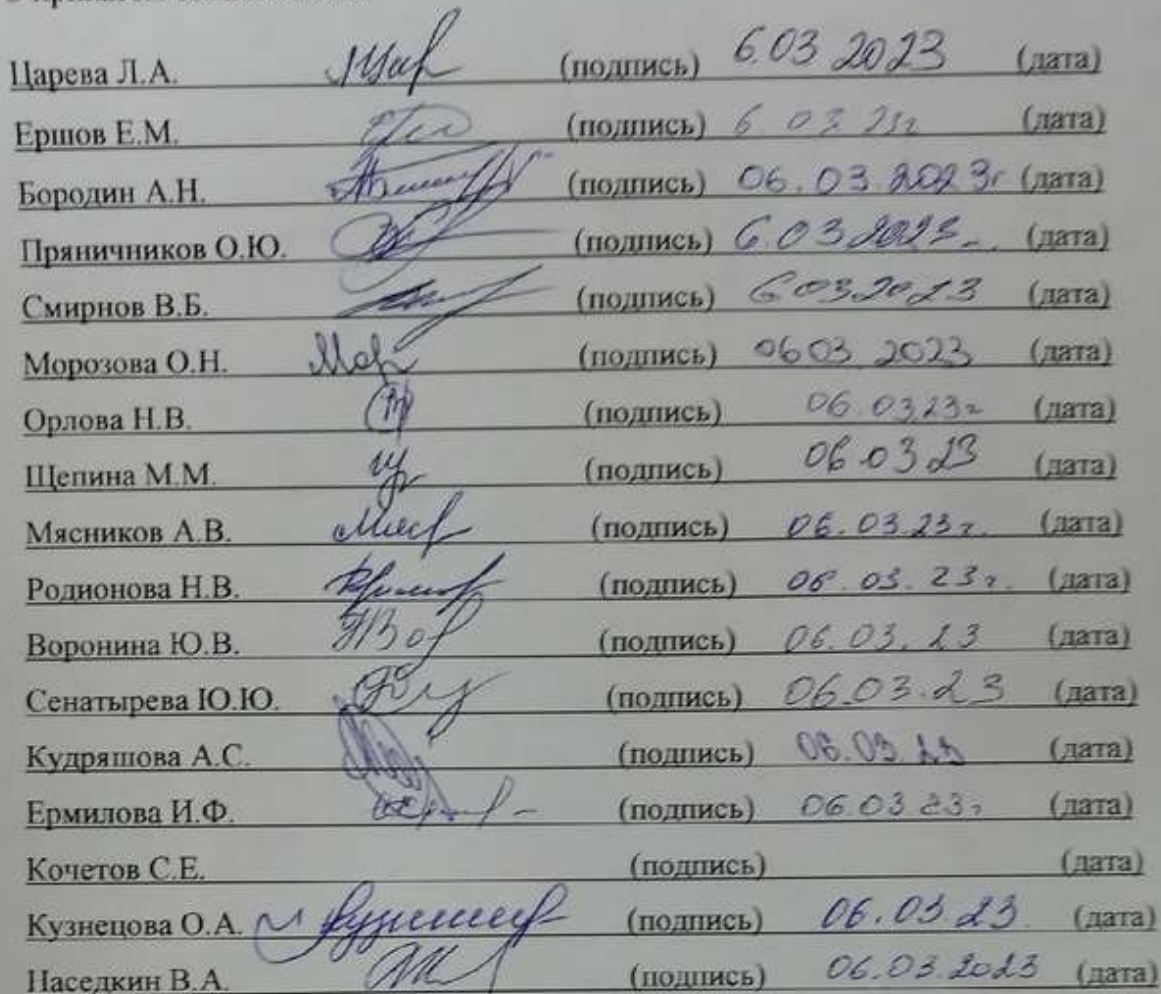 Царева Л.А. (подпись) 6.03 2023 (дата)
Ершов Е.М. (подпись) 6 03 23г (дата)
Бородин А.Н. (подпись) 06.03.2023г (дата)
Пряничников О.Ю. (подпись) 6.03 2023 (дата)
Смирнов В.Б. (подпись) 6 03 2023 (дата)
Морозова О.Н. Мор (подпись) 06 03 2023 (дата)
Орлова Н.В. (подпись) 06.03.23г (дата)
Щепина М.М. (подпись) 06.03 23 (дата)
Мясников А.В. (подпись) 06.03.23г. (дата)
Родионова Н.В. (подпись) 06.03.23г. (дата)
Воронина Ю.В. (подпись) 06.03.23 (дата)
Сенатырева Ю.Ю. (подпись) 06.03.23 (дата)
Кудряшова А.С. (подпись) 06.03.23 (дата)
Ермилова И.Ф. (подпись) 06.03 23г (дата)
Кочетов С.Е. (подпись) (дата)
Кузнецова О.А. (подпись) 06.03.23 (дата)
Наседкин В.А. (подпись) 06.03.2023 (дата)